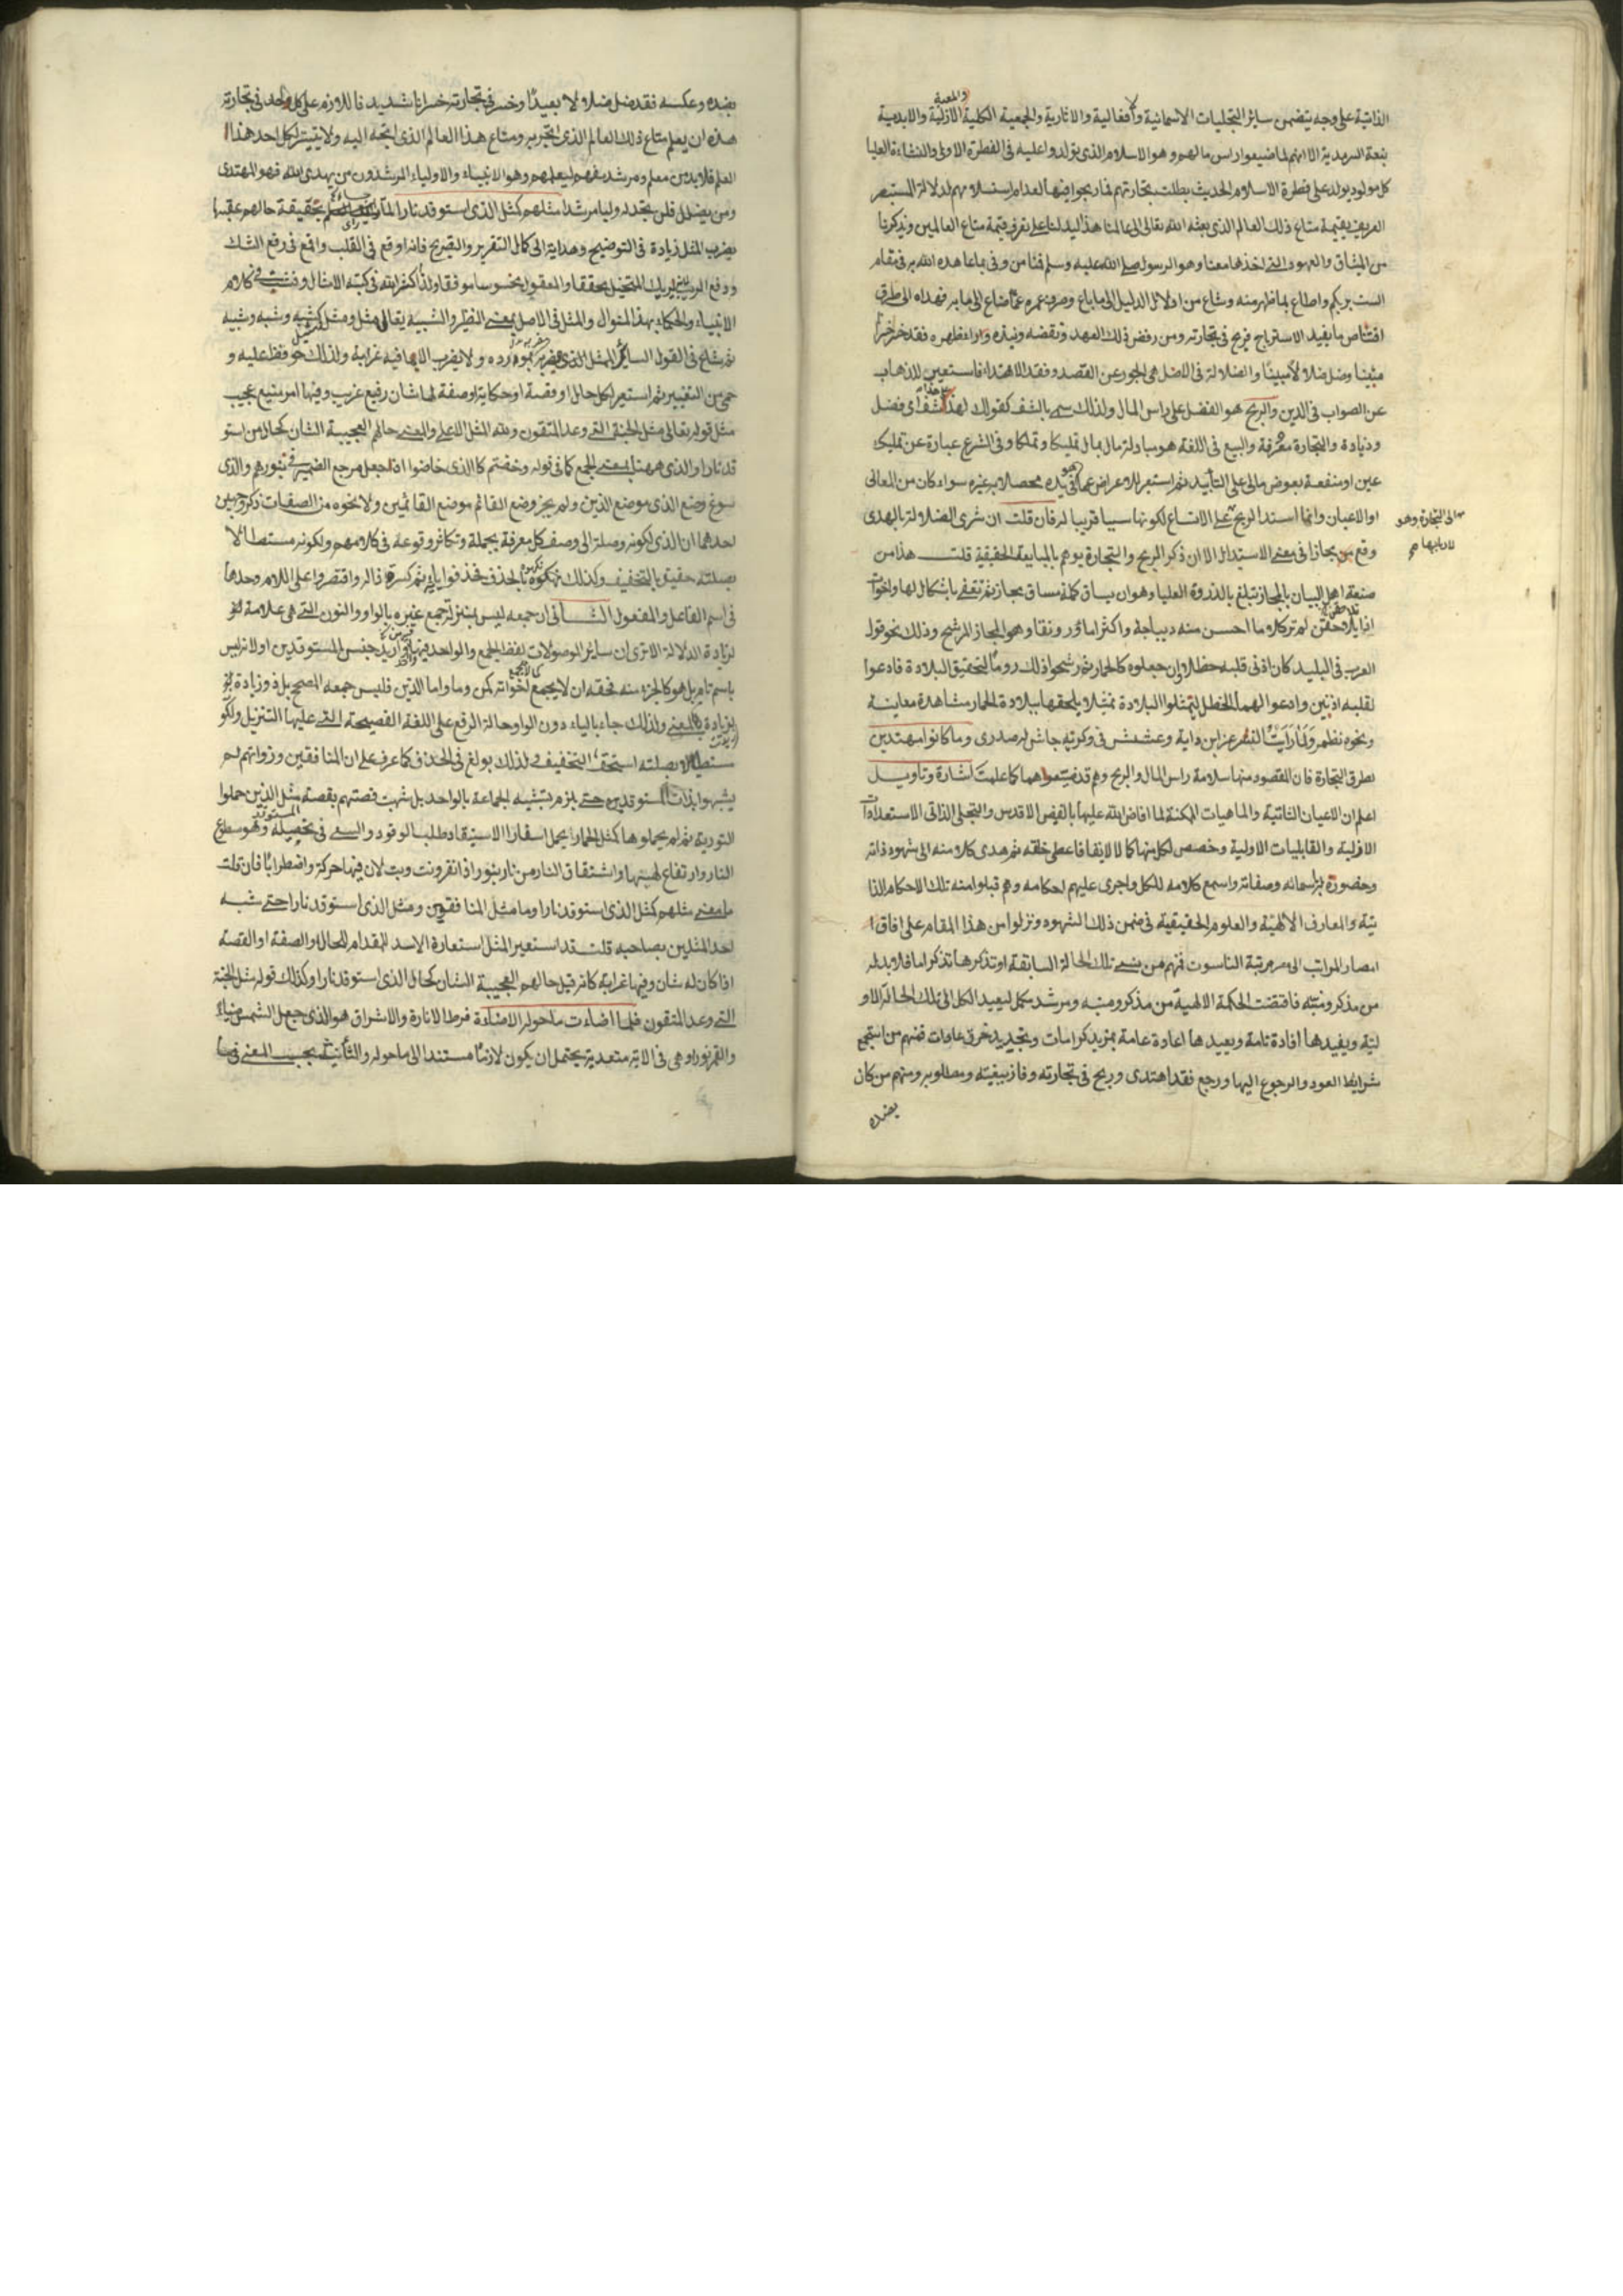 الذاتية على وجه يتضمن سائر التجليات الاسمائية وأفعالية والاثارية والجمعية الكلية الازلية والابدية
والمعية
كل مولود يولد على فطرة الاسلام الحديث بطلت تجارتهم فما ربحوا فيها لعدم استسلامهم لدلالة المستبصر
العريف بقيمة متاع ذلك العالم الذى بعثه الله تعالى الى عالمنا هذا ليدلنا على تعرف قيمة متاع العالمين ويذكرنا
من الميثاق والعهود التى اخذها معنا وهو الرسول صلى الله عليه وسلم فمنا من وفى بما عاهده الله به فى مقام
الست بربكم واطاع بما ظهر منه وشاع من ادلال الدليل الى ما باع وصرف عمره عما ضاع الى ما به فهداه الى طرق
اقتناص ما يفيد الاسترباح فربح فى تجارته ومن رفض ذلك العهد ونقضه ونبذه وراء ظهره فقد خسر خسرا
مبينا وضل ضلالا مبينا والضلالة فى الاصل هى الجور عن القصد وفقد الاهتداء فاستعير للذهاب
عن الصواب فى الدين والربح هو الفضل على راس المال ولذلك سمى بالشف كقولك لهذا شف أى فضل
وزيادة والتجارة معرفة والبيع فى اللغة هو مبادلة مال بمال تمليكا وتملكا وفى الشرع عبارة عن تمليك
عين او منفعة بعوض مالى على التأبيد ثم استعير للاعراض عما فى يده محصلا به غيره سواء كان من المعانى
او الاعيان وانما اسند الربح على الاتساع لكونها سببا قريبا له فان قلت ان شرى الضلالة بالهدى
الى التجارة وهو
لاربابها صح
وقع مجازا فى معنى الاستبدال الا ان ذكر الربح والتجارة يوهم بالمبايعة الحقيقية قلت هذا من
صنعة اهل البيان بالمجاز تبلغ بالذروة العليا وهو ان يساق كلمة مساق مجاز ثم تقفى باشكال لها واخوات
اذا تلاحقن لم تر كلاما احسن منه ديباجة واكثر ماء ورونقا وهو المجاز المرشح وذلك نحو قول
العرب فى البليد كان اذنى قلبه خطلا وان جعلوه كالحمار ثم رشحوا ذلك روما لتحقيق البلادة فادعوا
لقلبه اذنين وادعوا لهما الخطل ليمثلوا البلادة تمثيلا يلحقها ببلادة الحمار مشاهدة معاينة
ونحوه نظم ولما رأيت النسر عز ابن داية وعشش فى وكريه جاش له صدرى وما كانوا مهتدين
لطرق التجارة فان المقصود منها سلامة راس المال والربح وهم قد ضيعوا هما كما علمت اشارة وتاويل
اعلم ان الاعيان الثابتية والماهيات الممكنة لما افاض الله عليها بالفيض الاقدس والتجلى الذاتى الاستعدادات
الازلية والقابليات الاولية وخصص لكل منها كمالا لايقا فاعطى خلقه ثم هدى كلا منه الى شهود ذاته
وحضوره باسمائه وصفاته واسمع كلامه للكل واجرى عليهم احكامه وهم قبلوا منه تلك الاحكام الذا
تية والمعارف الالهية والعلوم الحقيقية فى ضمن ذلك الشهود ونزلوا من هذا المقام على افاق
امصار المراتب الى مرتبة الناسوت فمنهم من نسى تلك الحالة السابقة او تذكرها تذكرا ما فلا بد له
من مذكر ومنبه فاقتضت الحكمة الالهية من مذكر ومنبه ومرشد مكمل ليعيد الكل الى تلك الحالة الاو
لية ويفيدها افادة تامة ويعيدها اعادة عامة بمزيد كرامات وتجديد خرق عادات فمنهم من استجمع
شرايط العود والرجوع اليها ورجع فقد اهتدى وربح فى تجارته وفاز ببغيته ومطلوبه ومنهم من كان
بضده
بضده وعكسه فقد ضل ضلالا بعيدا وخسر فى تجارته خسرانا شديدا فاللازم على كل واحد فى تجارته
هذه ان يعلم متاع ذلك العالم الذى اتجر به ومتاع هذا العالم الذى اتجه اليه ولا يتيسر لكل احد هذا
العلم فلا بد من معلم ومرشد مفهم ليعلمهم وهو الانبياء والاولياء المرشدون من يهدى الله فهو المهتدى
ومن يضلل فلن تجد له وليا مرشدا مثلهم كمثل الذى استوقد نارا لما بحقيقة حالهم عقبها
بضرب المثل زيادة فى التوضيح وهداية الى كمال التقرير والتصريح فانه اوقع فى القلب واقمع فى رفع الشك
ودفع الريب يريك المتخيل محققا والمعقول محسوسا موفقا ولذا اكثر الله فى كتبه الامثال وفشت فى كلام
الانبياء والحكماء بهذا المنوال والمثل فى الاصل بمعنى النظير والشبيه يقال مثل ومثل كشبه وشبه وشبيه
ثم شاع فى القول السائر الممثل الذى مضربه بمورده ولا يضرب الا بما فيه غرابة ولذلك حوفظ عليه و
حمى من التغيير ثم استعير لكل حال او قصة او حكاية او صفة لها شان رفيع غريب وفيها امر منيع عجيب
مثل قوله تعالى مثل الجنة التى وعد المتقون ولله المثل الاعلى والمعنى حالهم العجيبة الشان كحال من استو
قد نارا والذى ههنا بمعنى الجمع كما فى قوله وخضتم كالذى خاضوا ان جعل مرجع الضمير فى بنورهم والذى
سوغ وضع الذى موضع الذين ولم يجز وضع القائم موضع القائمين ولا نحوه من الصفات ذكر وجهين
احدهما ان الذى لكونه وصلة الى وصف كل معرفة بجملة وتكاثر وقوعه فى كلامهم ولكونه مستطالا
بصلته حقيق بالتخفيف ولذلك نهكوه بالحذف فحذفوا ياءه ثم كسرة ذاله واقتصروا على اللام وحدها
فى اسم الفاعل والمفعول الثانى ان جمعه ليس بمنزلة جمع غيره بالواو والنون التى هى علامة
لزيادة الدلالة الا ترى ان سائر الموصولات لفظ الجمع والواحد فيها او اريد جنس المستوقدين او لانه ليس
باسم تام بل هو كالجزء منه فحقه ان لا يجمع كما لا يجمع اخواته كمن وما واما الذين فليس جمعه المصحح بل ذو زيادة
لزيادة المعنى ولذلك جاء بالياء دون الواو حالة الرفع على اللغة الفصيحة التى عليها التنزيل ولكونه
مستطالا بصلته استحق التخفيف ولذلك بولغ فى الحذف كما عرف على ان المنافقين وذواتهم لم
يشبهوا بذات المستوقدين حتى يلزم تشبيه الجماعة بالواحد بل شبهت قصتهم بقصة مثل الذين حملوا
المستوقد
التورية ثم لم يحملوها كمثل الحمار يحمل اسفارا الاستيقاد طلب الوقود والسعى فى تحصيله وهو سطوع
النار وارتفاع لهبها واشتقاق النار من نار ينور اذا نفر ونبت لان فيها حركة واضطرابا فان قلت
ما معنى مثلهم كمثل الذى استوقد نارا وما مثل المنافقين ومثل الذى استوقد نارا حتى شبه
احد المثلين بصاحبه قلت قد استعير المثل استعارة الاسد للمقدام للحال والصفة او القصة
اذا كان له شان وفيها غرابة كانه قيل حالهم العجيبة الشان كحال الذى استوقد نارا وكذلك قوله مثل الجنة
التى وعد المتقون فلما اضاءت ما حوله الاضاءة فرط الانارة والاشراق هو الذى جعل الشمس ضياء
والقمر نورا وهى فى الاية متعدية يحتمل ان يكون لازما مستندا الى ما حوله والتأنيث بحسب المعنى